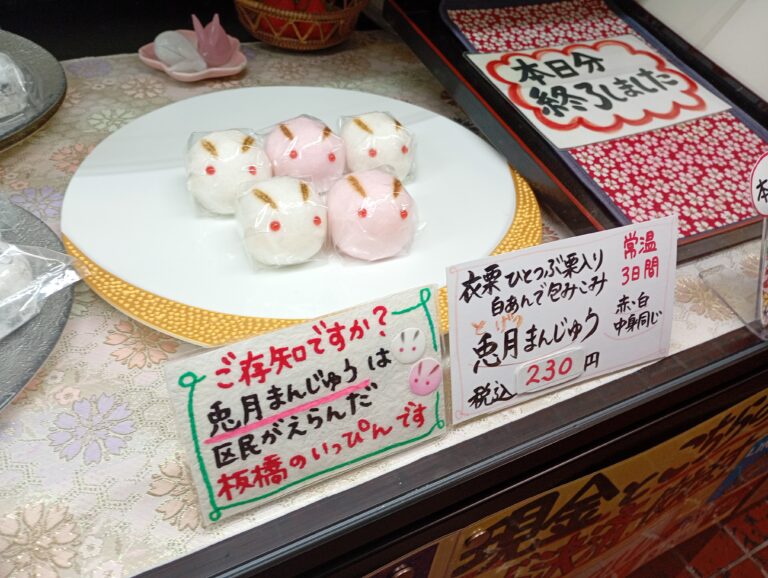 本日分
終了しました
衣栗ひとつぶ栗入り
白あんで包みこみ
とげつ
兎月まんじゅう
税込 230円
常温
3日間
赤・白
中身同じ
ご存知ですか?
兎月まんじゅうは
区民がえらんだ
板橋のいっぴんです
本
現金